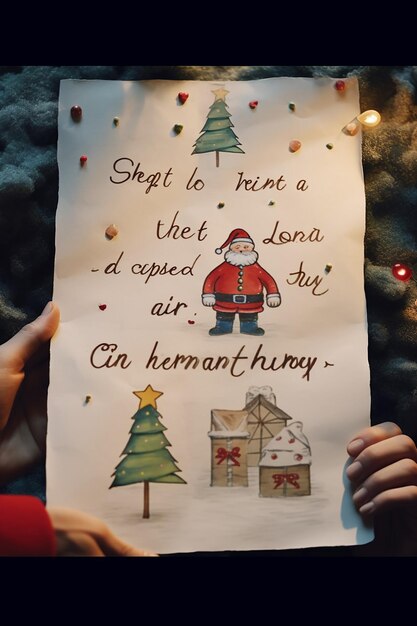 Shgt lo heint a
thet Lona
-d cepsed fuy
air.
Cin hermanthuroy,